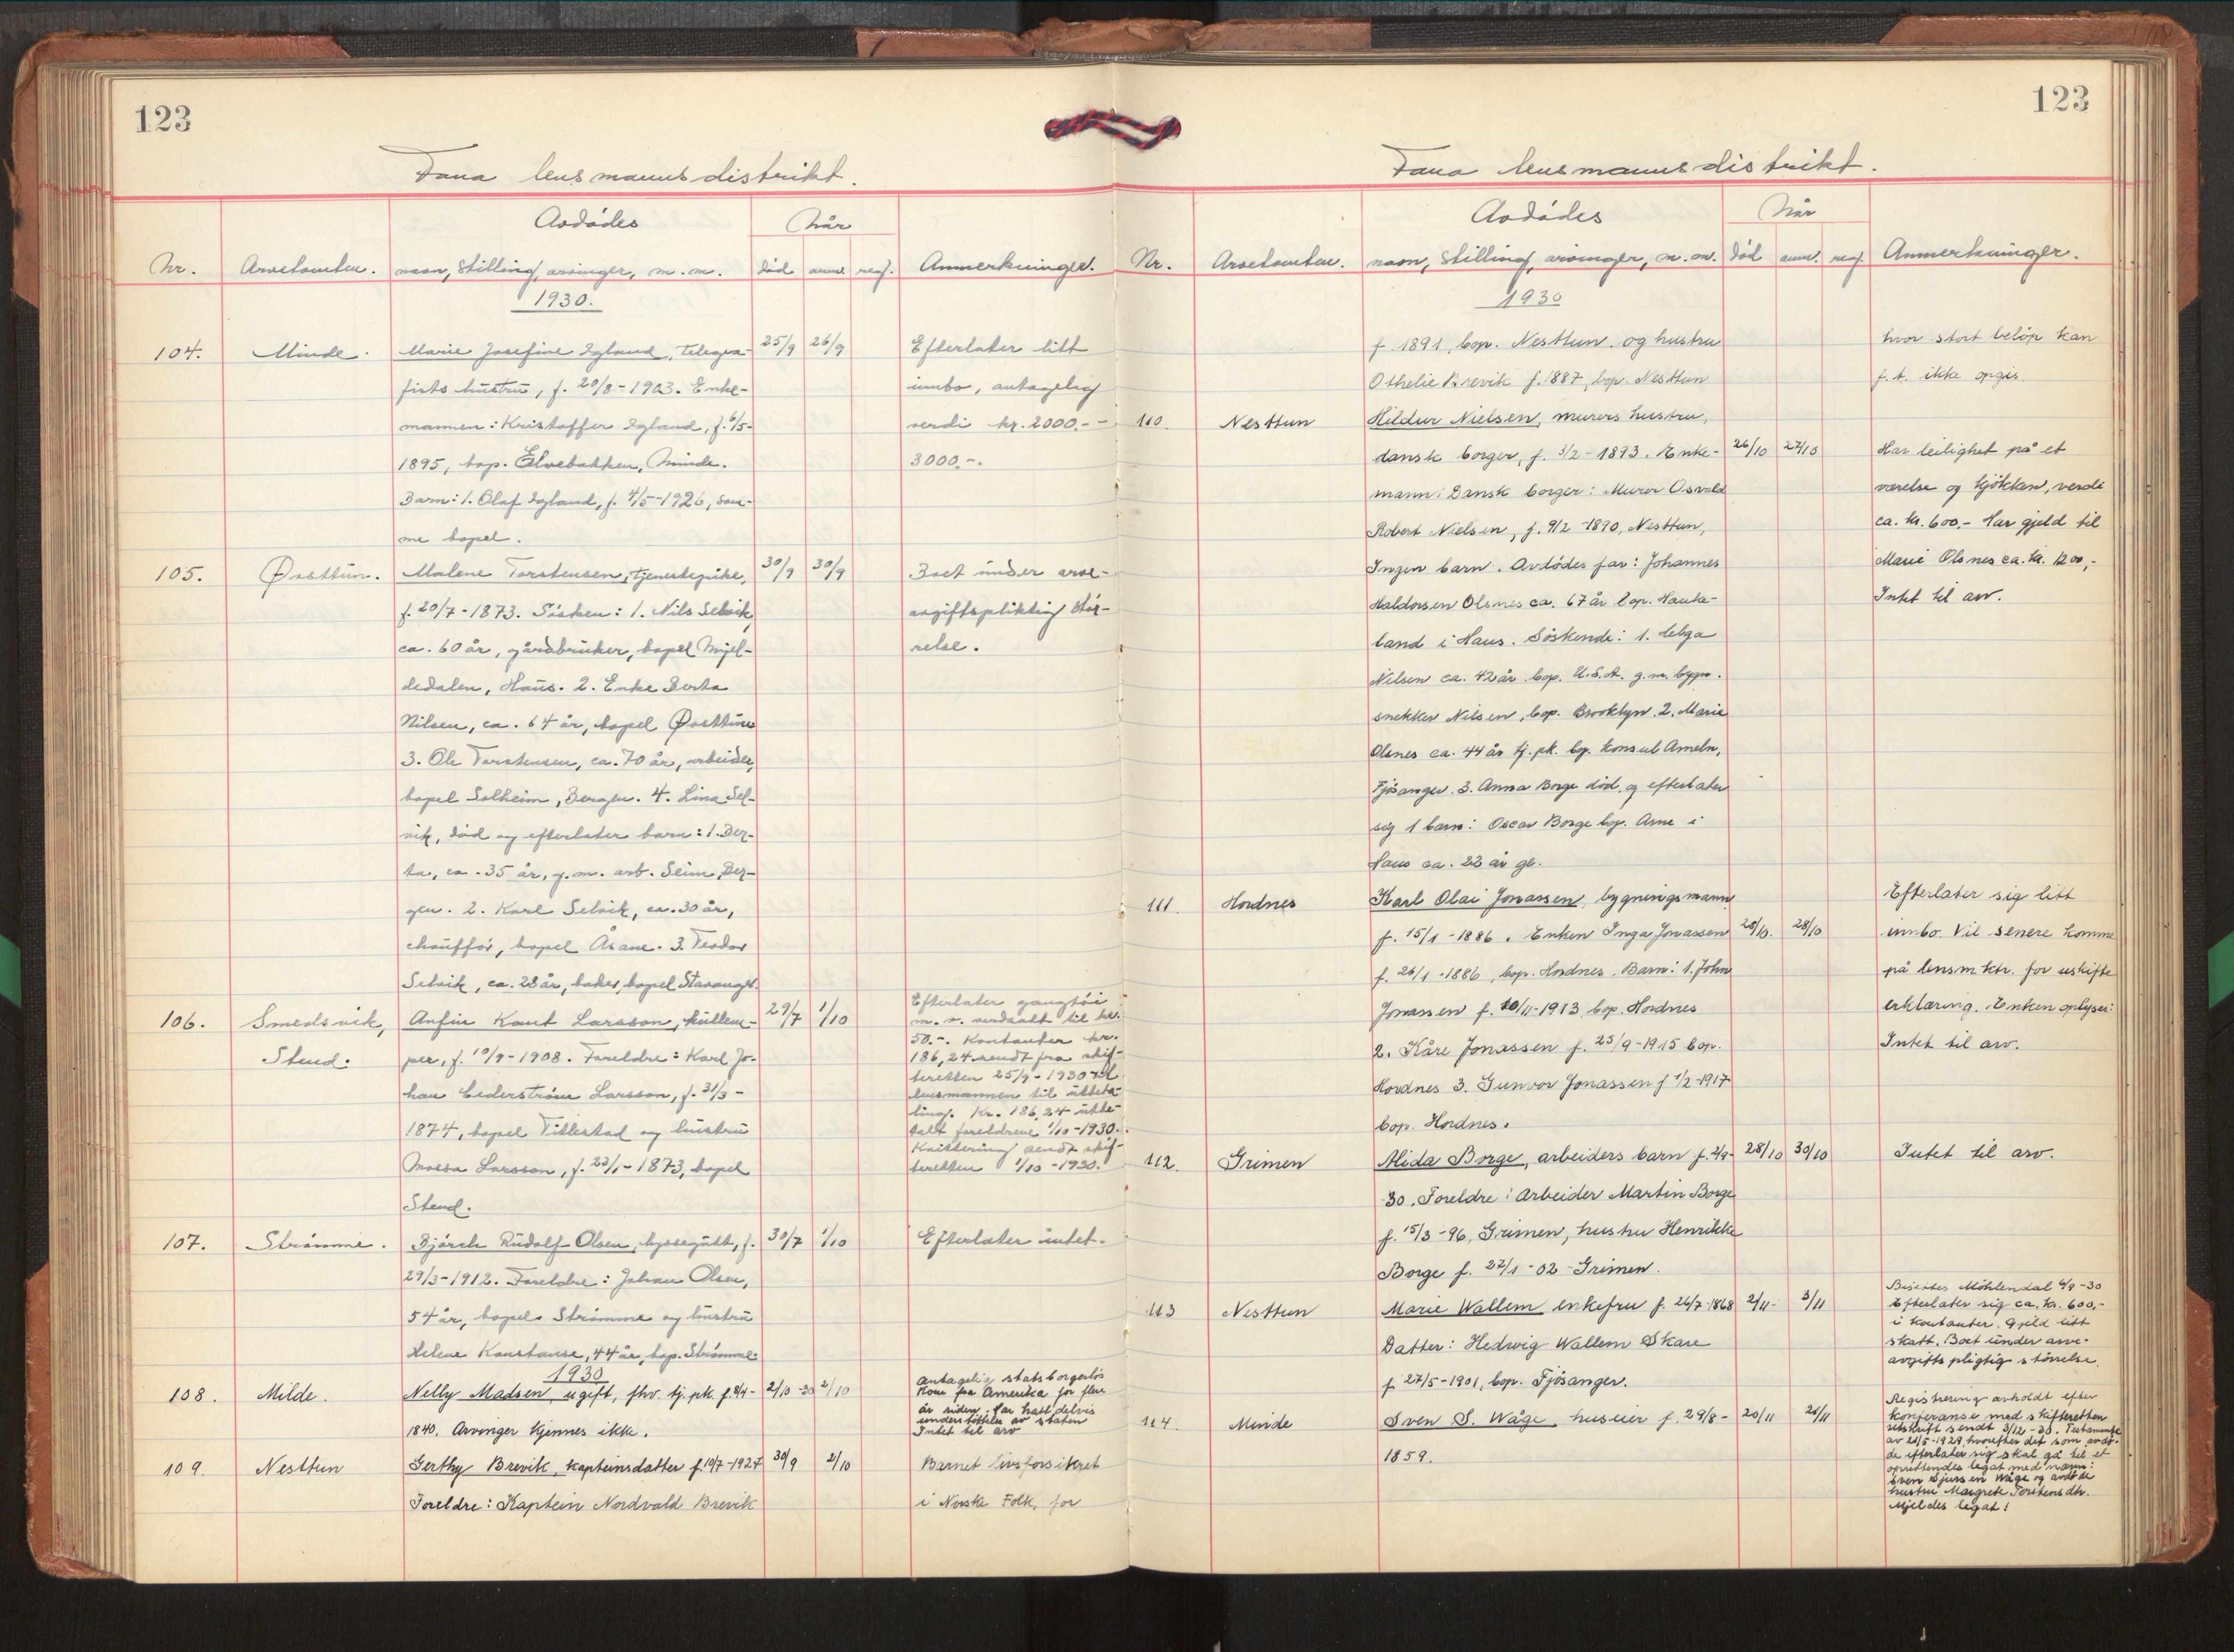 123
Fana lensmannsdistrikt.
Avdödes
Når
Nr.
Arvetomten.
navn, stilling, arvinger, m.m.
död
anm.
reg.
Anmerkninger.
1930.
104.
Minde.
Marie Josefine Igland, telegra-
25/9
26/9
Efterlater litt
fists hustru, f. 20/8-1903. Enke-
innbo, antagelig
mannen: Kristoffer Igland, f. 6/5-
verdi kr. 2000.- -
1895, bop. Elvebakken, Minde.
3000.-.
Barn: 1. Olaf Igland, f. 4/5-1926, sam-
me bopel.
105.
Østtun.
Malene Torstensen, tjenestepike,
30/9
30/9
Boet under arve-
f. 20/7-1873. Sösken: 1. Nils Selvik,
avgiftspliktig stör-
ca. 60 år, gårdbruker, bopel Mjel-
relse.
dedalen, Haus. 2. Enke Berta
Nilsen, ca. 64 år, bopel Østtun
3. Ole Torstensen, ca. 70 år, arbeider,
bopel Solheim, Bergen. 4. Lina Sel-
vik, död og efterlater barn: 1. Ber-
ta, ca. 35 år, g.m. arb. Seim, Ber-
gen. 2. Karl Selvik, ca. 30 år,
chaufför, bopel Åsane. 3. Teodor
Selvik, ca. 28 år, baker, bopel Stavanger.
106.
Smedsvik,
Anfin Kaut Larsson, kullem-
29/7
1/10
Efterlater gangtöi
m.v. verdsatt til kr.
50.-. Kontanter kr.
Stend.
per, f. 10/9-1908. Foreldre: Karl Jo-
186,24 sendt fra skif-
teretten 25/9-1930 til
han Cederström Larsson, f. 31/3-
lensmannen til utbeta-
ling. Kr. 186,24 utbe-
1874, bopel Titlestad og hustru
talt foreldrene 1/10-1930.
Kvittering sendt skif-
Mossa Larsson, f. 23/1-1873, bopel
teretten 1/10-1930.
Stend.
107.
Strömme.
Bjarch Rudolf Olsen, byssegutt, f.
30/7
1/10
Efterlater intet.
29/3-1912. Foreldre: Johan Olsen,
54 år, bopel Strömme og hustru
Helene Konstanse, 44 år, bop. Strömme.
1930
108.
Milde.
Nelly Madsen, ugift, fhv. tj. pk. f. 8/4-
2/10-30
2/10
Antagelig statsborgerlös
Kom fra Amerika for flere
år siden. Har hatt delvis
understöttelse av staten
1840. Arvinger kjennes ikke.
Intet til arv
109.
Nesttun
Gerthy Brevik, kapteinsdatter f. 10/7-1927
30/9
2/10
Barnet livsforsikret
Foreldre: Kaptein Nordvald Brevik
i Norske Folk, for
123
Fana lensmannsdistrikt.
Avdödes
Når
Nr.
Arvetomten.
navn, stilling, arvinger, m.m.
död
anm.
reg.
Anmerkninger.
1930
f. 1891, bop. Nesttun. og hustru
hvor stort belöp kan
Othelie Brevik f. 1887, bop. Nesttun
f.t. ikke opgis.
110.
Nesttun
Hildur Nielsen, murers hustru,
dansk borger, f. 3/2-1893. Enke-
26/10
27/10
Har leilighet på et
mann: Dansk borger: Murer Osvald
værelse og kjökken, verdi
Robert Nielsen, f. 9/2-1890, Nesttun,
ca. kr. 600.- Har gjeld til
Ingen barn. Avdödes far: Johannes
Marie Olsnes ca. kr. 1200,-
Haldorsen Olsnes ca. 67 år bop. Hauke-
Intet til arv.
land i Haus. Söskende: 1. Helga
Nilsen ca. 42 år bop. U.S.A. g.m. bygn.
snekker Nilsen, bop. Brooklyn. 2. Marie
Olsnes ca. 44 år tj. pk. bp. konsul Ameln,
Fjösanger. 3. Anna Borge död, og efterlater
sig 1 barn: Oscar Borge bop. Arne i
Haus ca. 22 år gl.
111.
Hordnes
Karl Olai Jonassen, bygningsmann
Efterlater sig litt
f. 15/1-1886. Enken Inga Jonassen
28/10.
28/10
innbo. Vil senere komme
f. 26/1-1886, bop. Hordnes. Barn: 1. John
på lensm ktr. for uskifte
Jonassen f. 10/11-1913, bop. Hordnes
erklæring. Enken oplyser:
2. Kåre Jonassen f. 25/9-1915 bop.
Intet til arv.
Hordnes 3. Gunvor Jonassen f 1/2-1917
bop. Hordnes.
112.
Grimen
Alida Borge, arbeiders barn f. 2/9-
28/10
30/10
Intet til arv.
30. Foreldre: Arbeider Martin Borge
f. 15/3-96, Grimen, hustru Henrikke
Borge f. 22/1-02 Grimen.
113
Nesttun
Marie Wallem enkefru f. 26/7-1868
2/11-
3/11
Bisettes Möhlendal 6/9-30
Efterlater sig ca. kr. 600,-
i kontanter. Gjeld litt
Datter: Hedwig Wallem Skare
skatt. Boet under arve-
avgifts pligtig störrelse.
f. 27/5-1901, bop. Fjösanger.
114.
Minde
Sven S. Wåge, huseier f. 29/8-
20/11
21/11
Registrering avholdt efter
konferanse med skifteretten
utskrift sendt 3/12-30. Testamente
av 21/5-1929, hvorefter det som avdö-
1859.
de efterlater sig skal gå til et
oprettendes legat med navn:
Sven Sjursen Wåge og avdöde
hustru Margrete Torstensdtr.
Mjeldes legat!